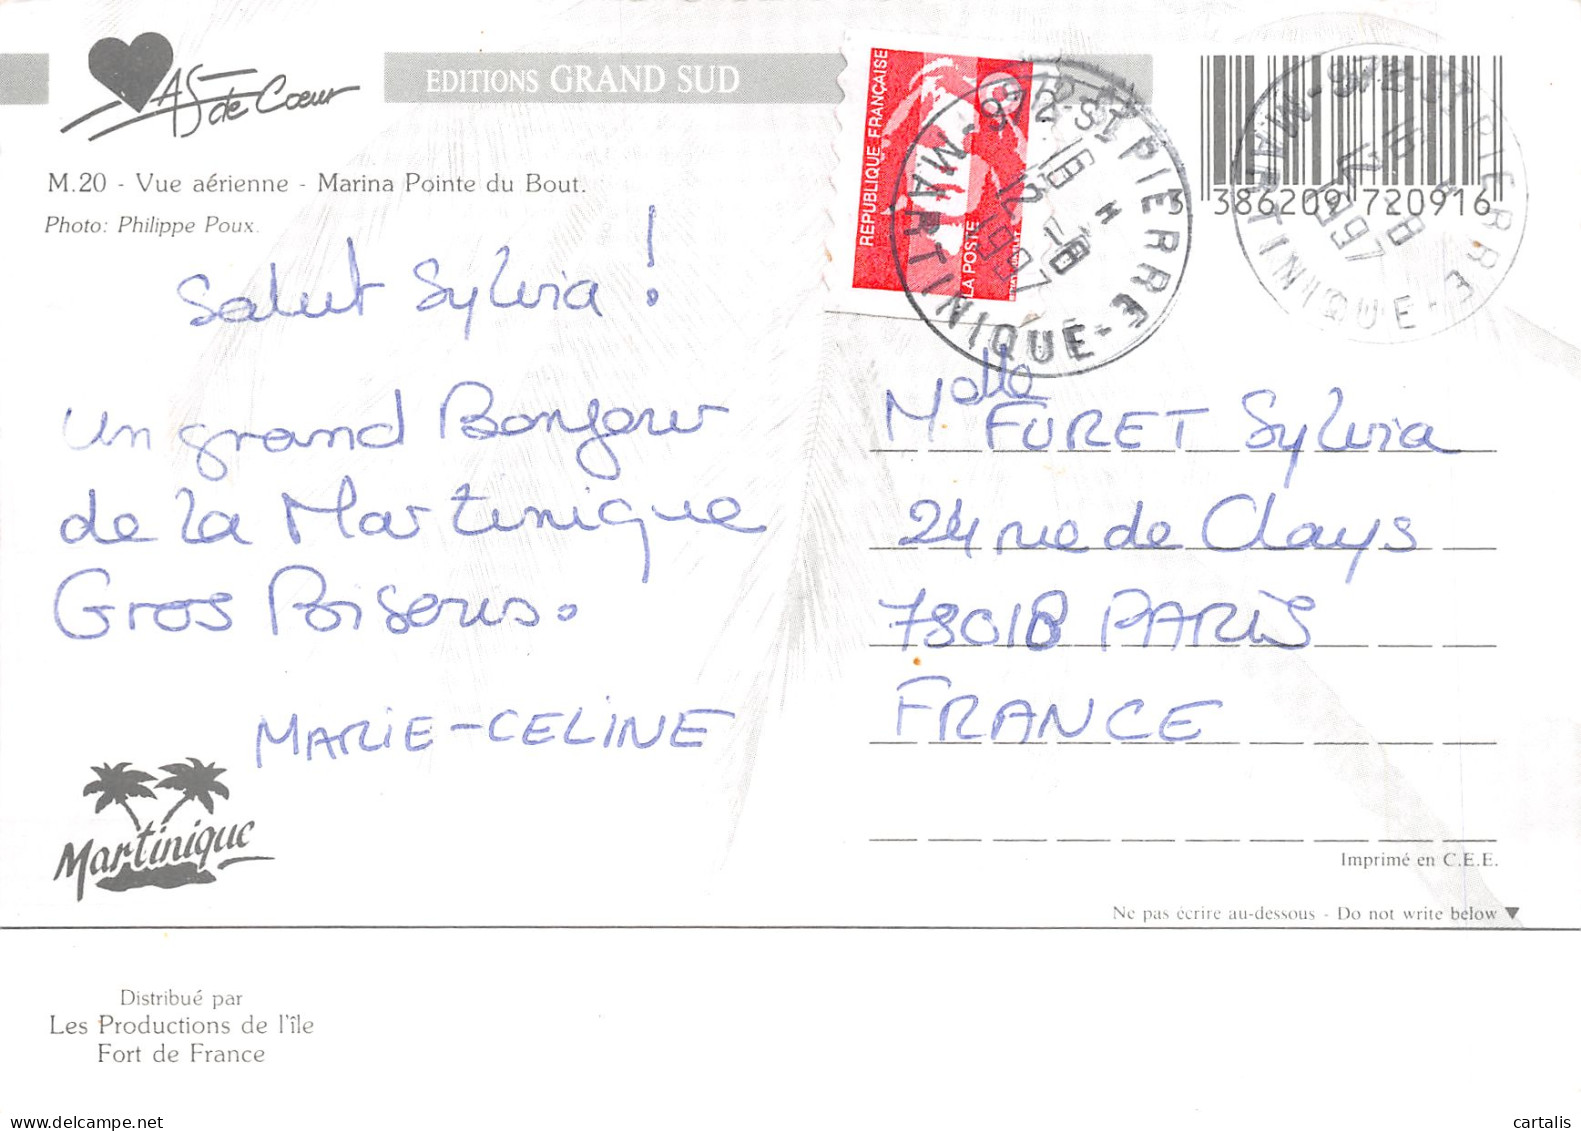 As de Cœur
EDITIONS GRAND SUD
M.20 - Vue aérienne - Marina Pointe du Bout.
Photo: Philippe Poux.
REPUBLIQUE FRANÇAISE
LA POSTE
972-ST PIERRE - MARTINIQUE -
16 H
12-8
1997
3 386209 720916
972-ST PIERRE - MARTINIQUE -
16 H
12-8
1997
Salut Sylvia !
Un grand Bonjour
de la Martinique
Gros Boisous.
MARIE-CELINE
Melle FURET Sylvia
24 rue de Clays
78018 PARIS
FRANCE
Martinique
Imprimé en C.E.E.
Ne pas écrire au-dessous - Do not write below
Distribué par
Les Productions de l'île
Fort de France
cartalis